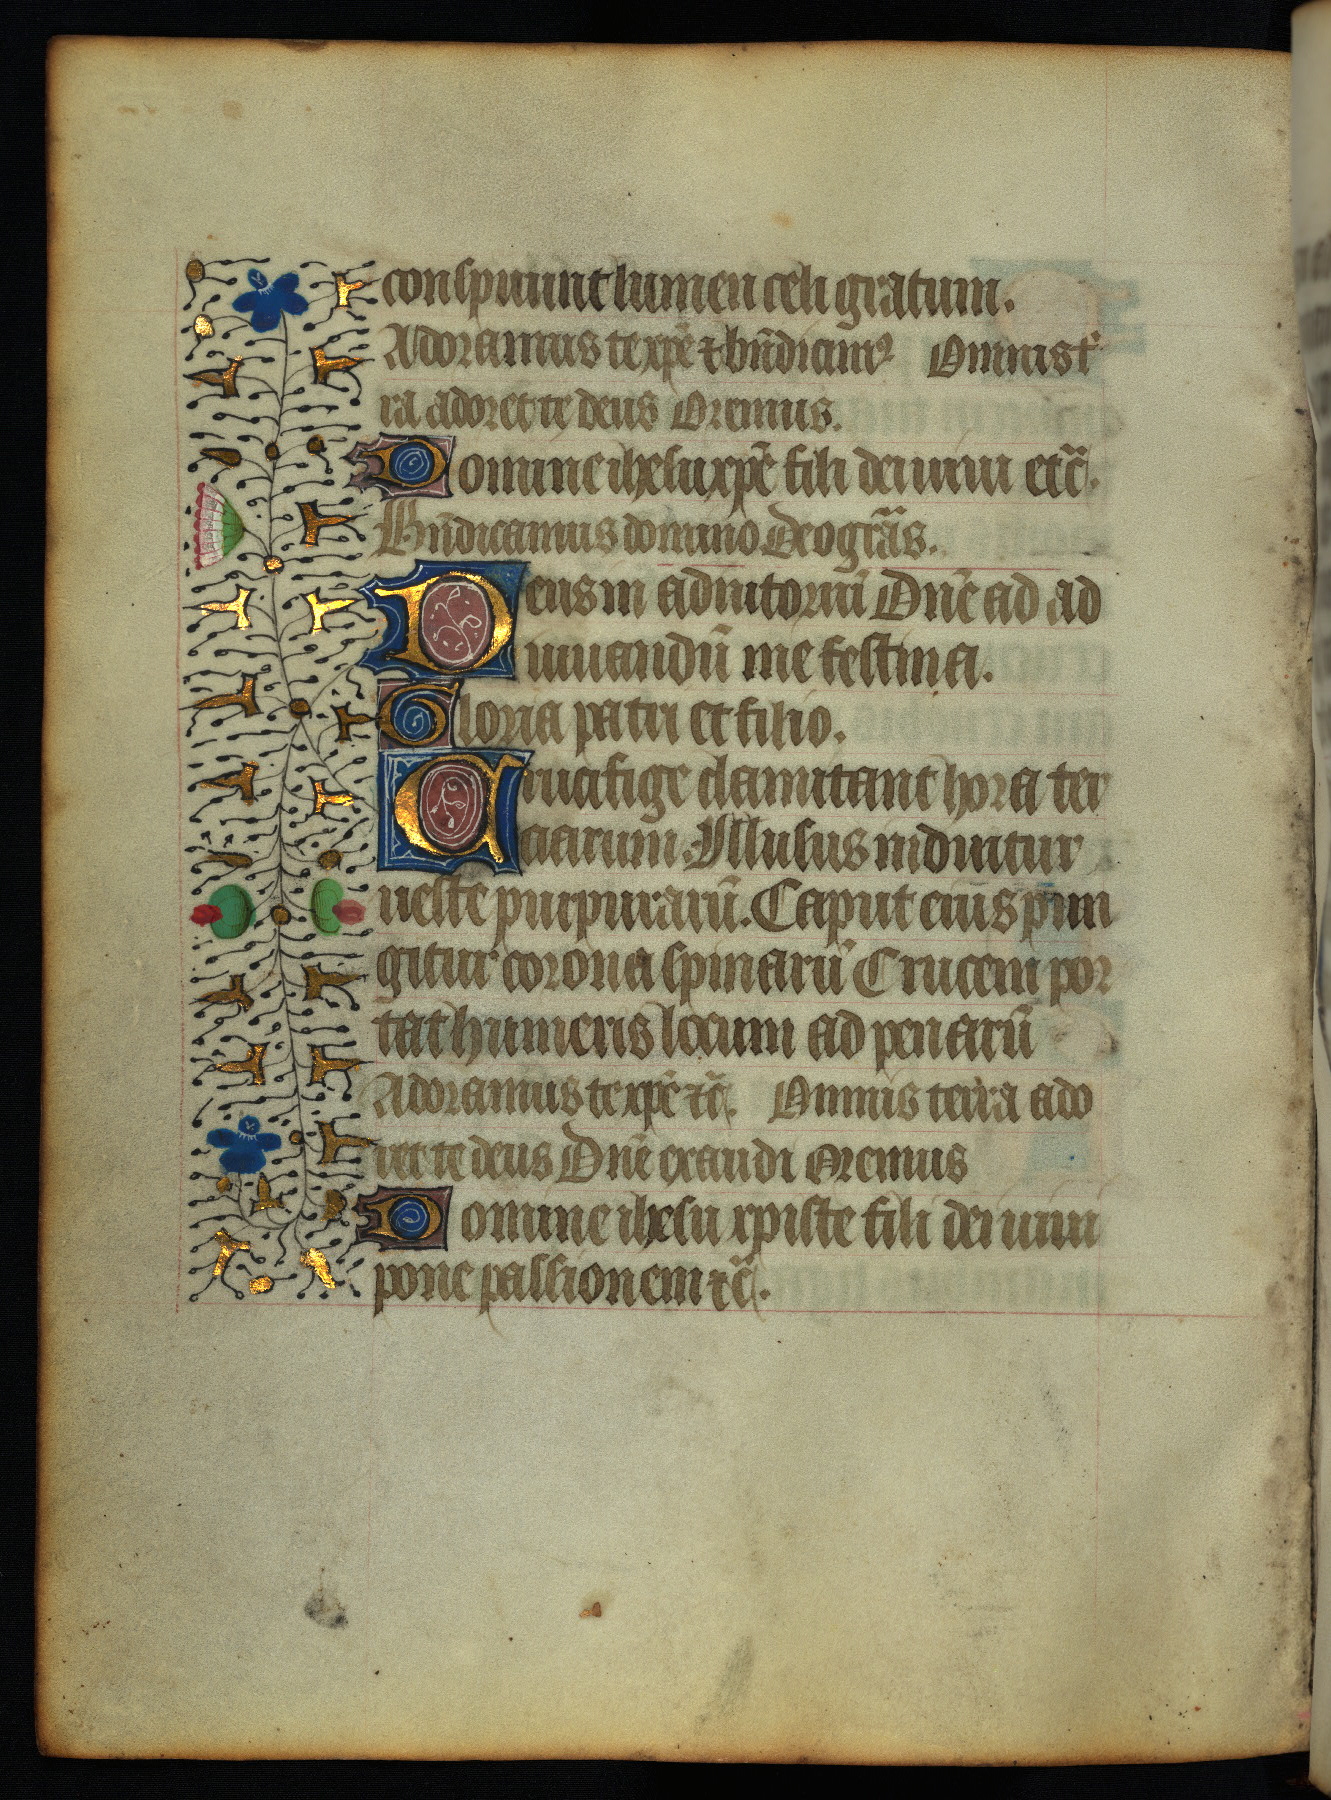 conspuunt lumen celi gratum.
Adoramus te xpē ⁊ bn̄dicimꝰ Omnis t̄
ra adoret te deus Oremus.
Domine ihesu xpē fili dei uiui etc̄.
Bn̄dicamus domino Deo grās.
Deus in adiutoriū Dn̄e ad ad
iuuandū me festina.
Gloria patri et filio.
Crucifige clamitant hora ter
ciarum. Illusus induitur
ueste purpurarū. Caput eius pun
gitur corona spinarū Crucem por
tat humeris locum ad penarū
Adoramus te xpē ⁊c̄. Omnis terra ado
ret te deus Dn̄e exaudi Oremus
Domine ihesu xpiste fili dei uiui
pone passionem ⁊c̄.